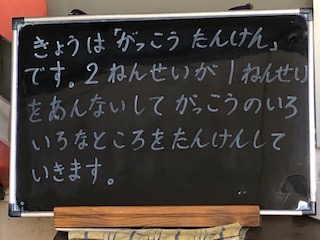 きょうは「がっこう たんけん」
です。2ねんせいが1ねんせい
をあんないして がっこうのいろ
いろなところをたんけんして
いきます。